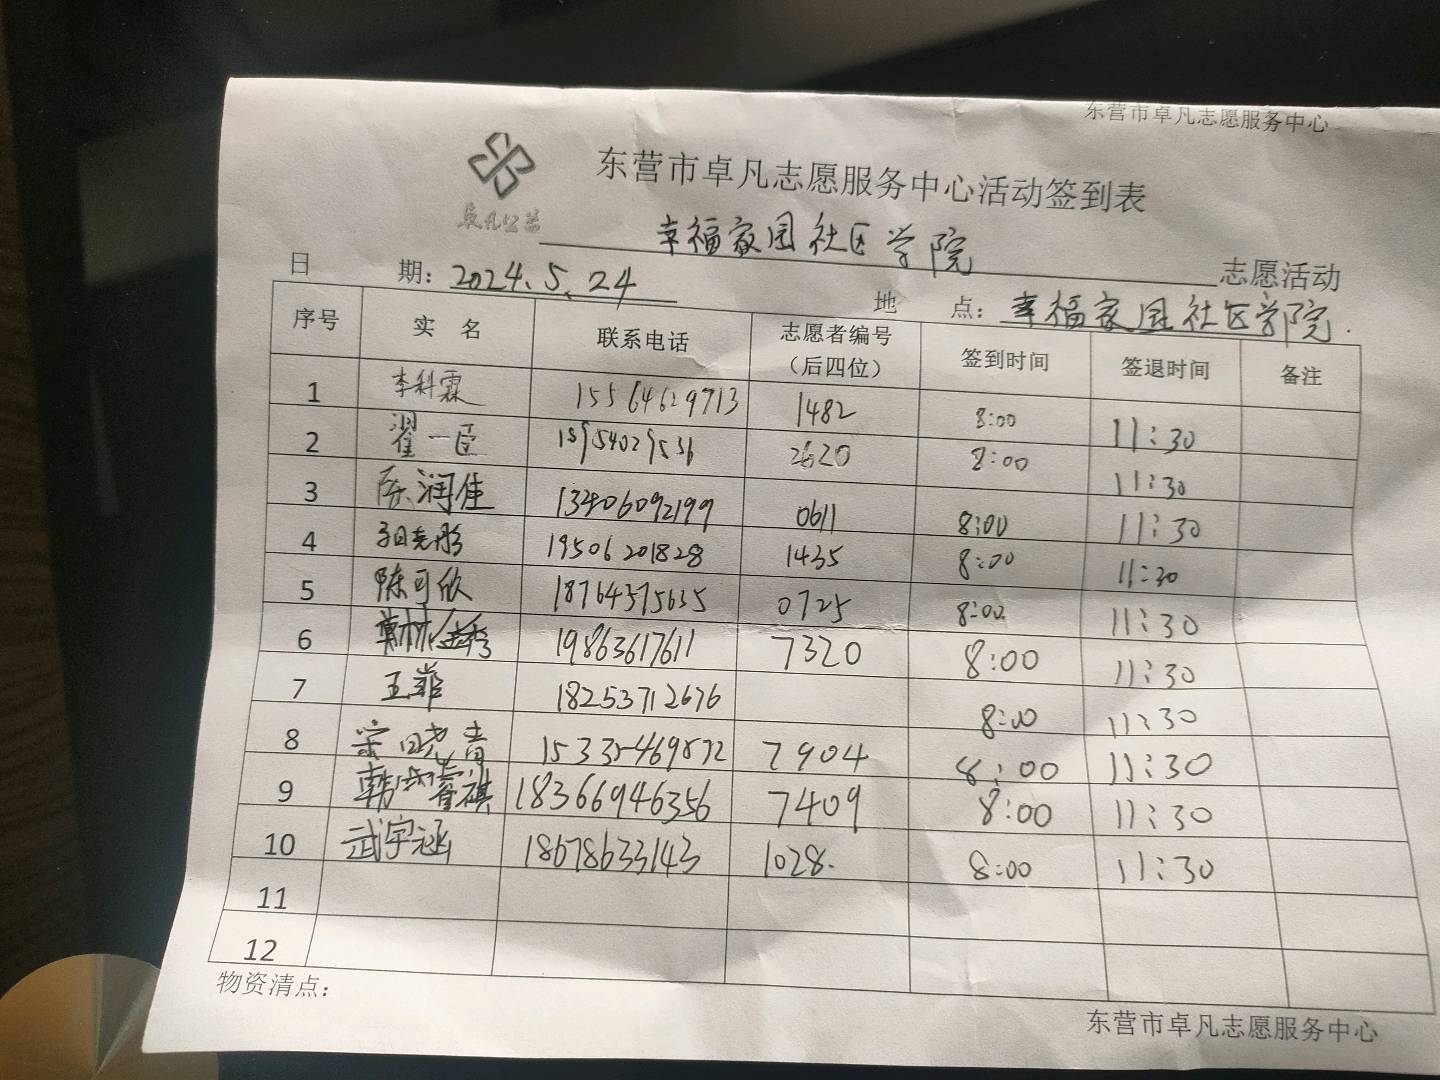 东营市卓凡志愿服务中心
东营市卓凡志愿服务中心活动签到表
卓凡公益
幸福家园社区学院 志愿活动
日 期：2024.5.24 地 点：幸福家园社区学院.
序号 实 名 联系电话 志愿者编号（后四位） 签到时间 签退时间 备注
1 李科霖 15564629713 1482 8:00 11:30
2 翟一臣 15954029536 2620 8:00 11:30
3 陈润佳 13406092199 0611 8:00 11:30
4 19506201828 1435 8:00 11:30
5 陈可欣 18764375635 0725 8:00 11:30
6 19863617611 7320 8:00 11:30
7 王菲 18253712676 8:00 11:30
8 宋晓青 15335469872 7904 8:00 11:30
9 韩睿祺 18366946356 7409 8:00 11:30
10 武宇涵 18678633143 1028. 8:00 11:30
11
12
物资清点：
东营市卓凡志愿服务中心